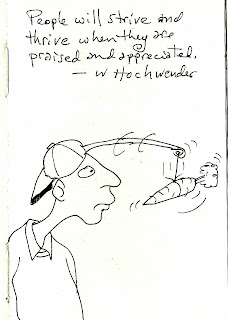 People will strive and
thrive when they are
praised and appreciated.
— W Hochwender